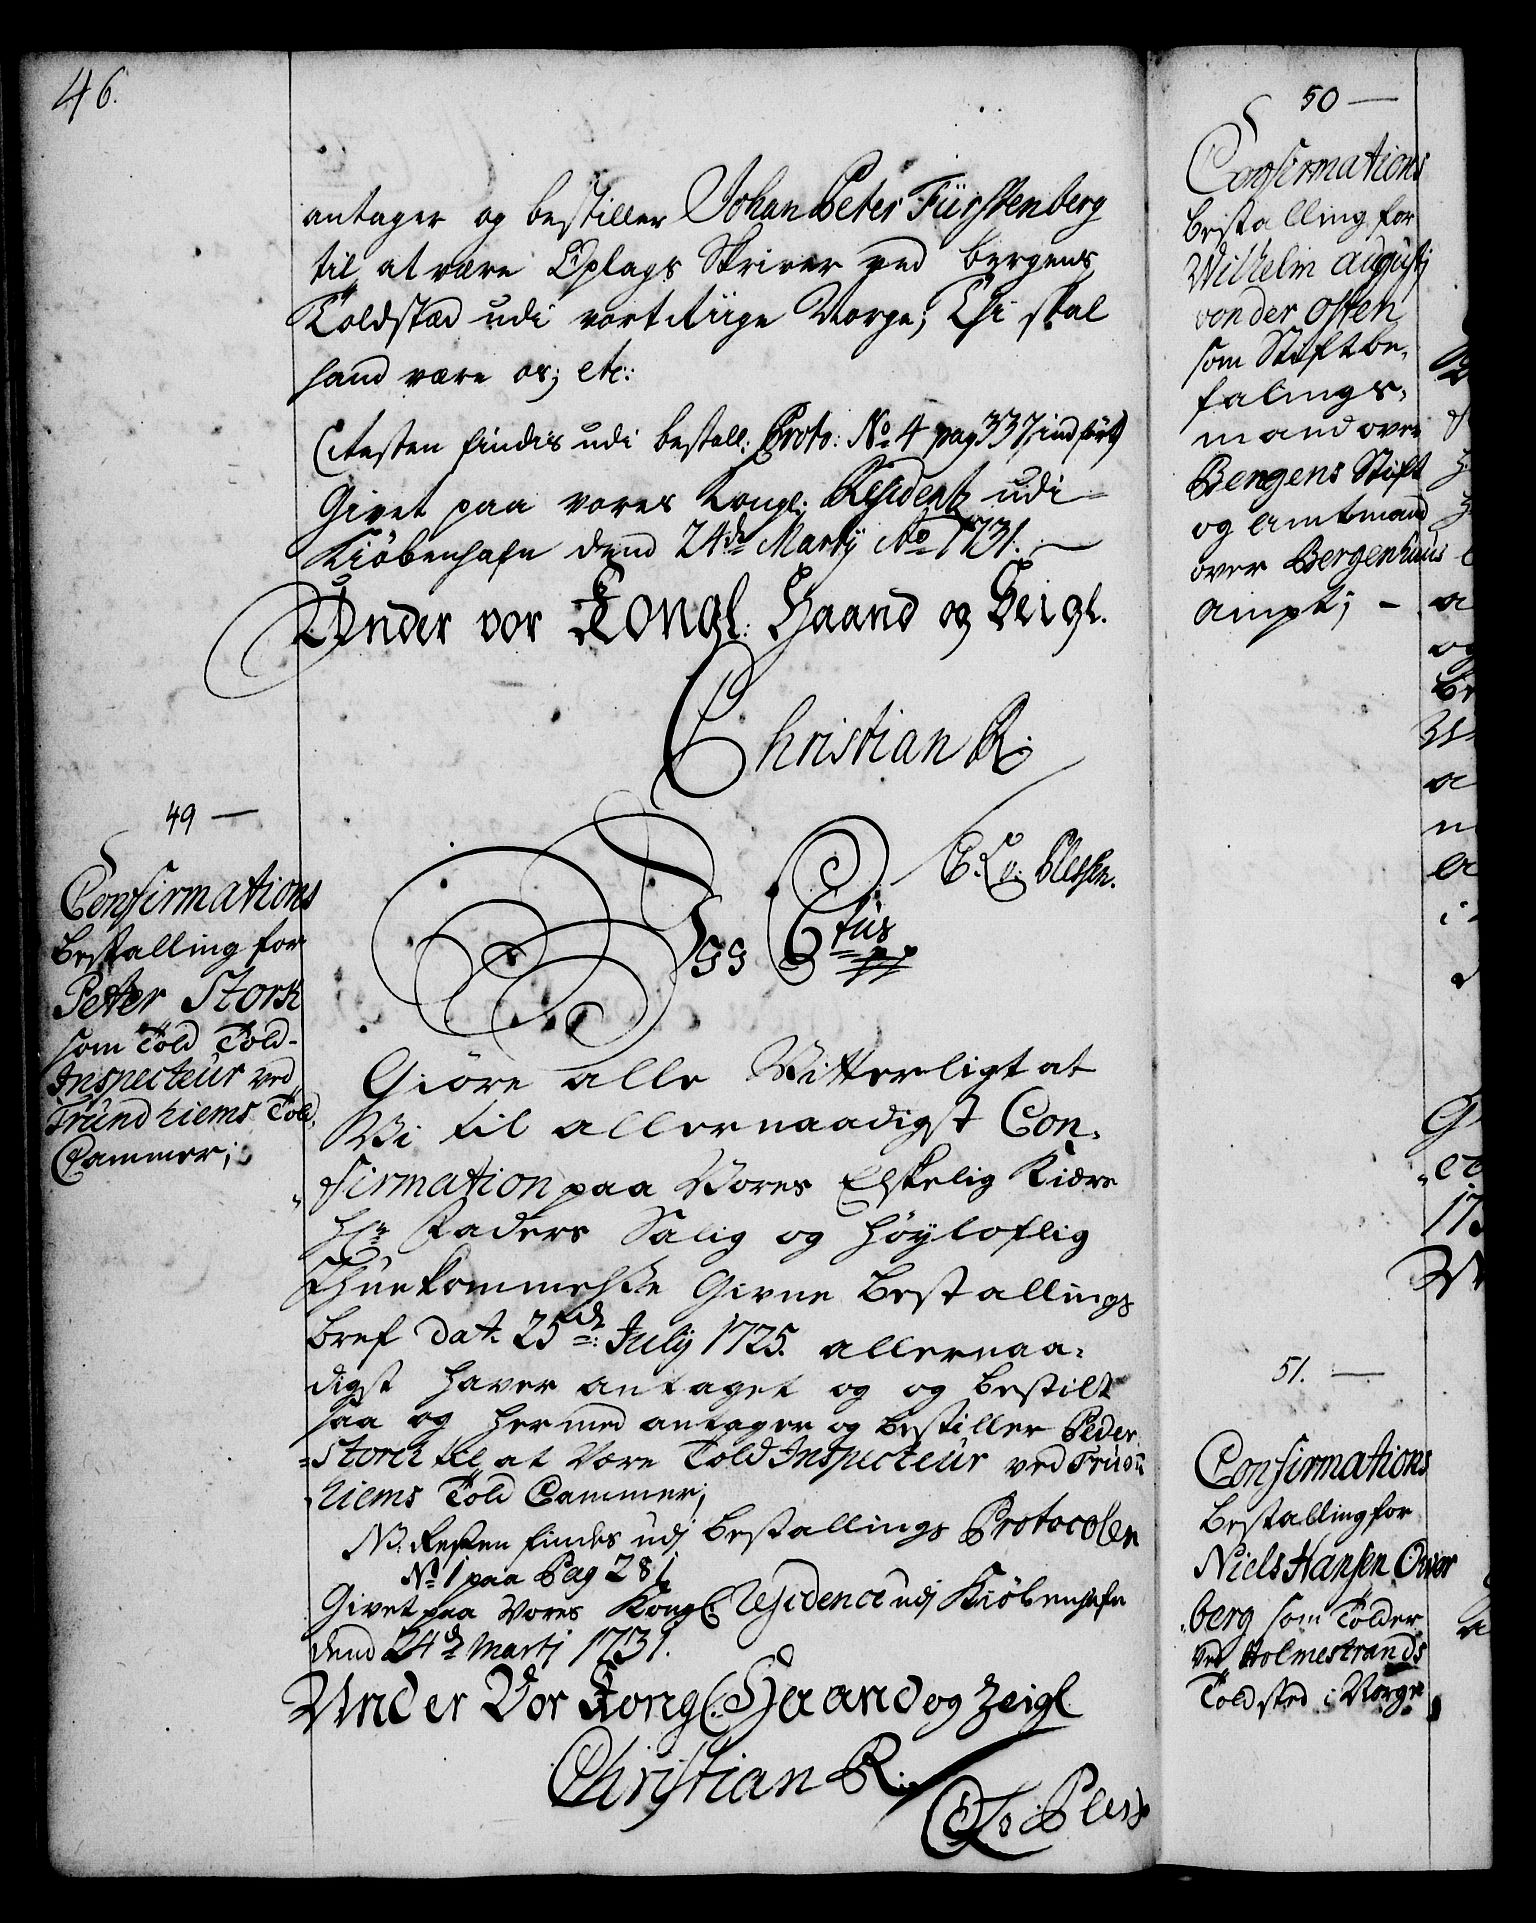 46.
antager og bestiller Johan Peter Fürstenberg
til at være Oplags Skriver ved bergens
Toldsted udi vort Riige Norge; Thi skal
hand være os; etc:
Resten findis udi bestall: Proto: No 4 pag 337 indført
Givet paa vores Kongl: Residentz udi
Kiöbenhafn dend 24de Martij Ao 1731.
Under vor Kongl: Haand og Zeigl.
Christian R.
C. A. v. Plessen.
49
Confirmations
bestalling for
Peter Stork
som Told Told-
Inspecteur ved
Trundhiems Told
Cammer;
Css Ctus
Giöre alle Vitterligt at
Vi til allernaadigst Con-
firmation paa Vores Elskelig Kiære
Hr Faders Salig og Höyloflig
Ihuekommelsse Givne Bestallings
bref Dat. 25de July 1725. allernaa-
digst haver antaget og og bestilt
saa og hermed antager og bestiller Peder
Storck til at være Told Inspecteur ved Trund
hiems Told Cammer;
NB. Resten findes udj bestallings Protocolen
No 1 paa Pag 281
Givet paa Vores Kongl. Residence udj Kiöbenhafn
dend 24de Martj 1731.
Under Vor Kongl. Haand og Zeigl
Christian R.
50
Confirmations
bestalling for
Wilhelm Augustj
von der Osten
som Stiftbe-
falings-
mand over
Bergens Stift
og Amtmand
over Bergenhuus
Ampt;
51.
Confirmations
Bestalling for
Niels Hansen Over
berg som Tolder
ved Holmestrands
Toldsted i Norge